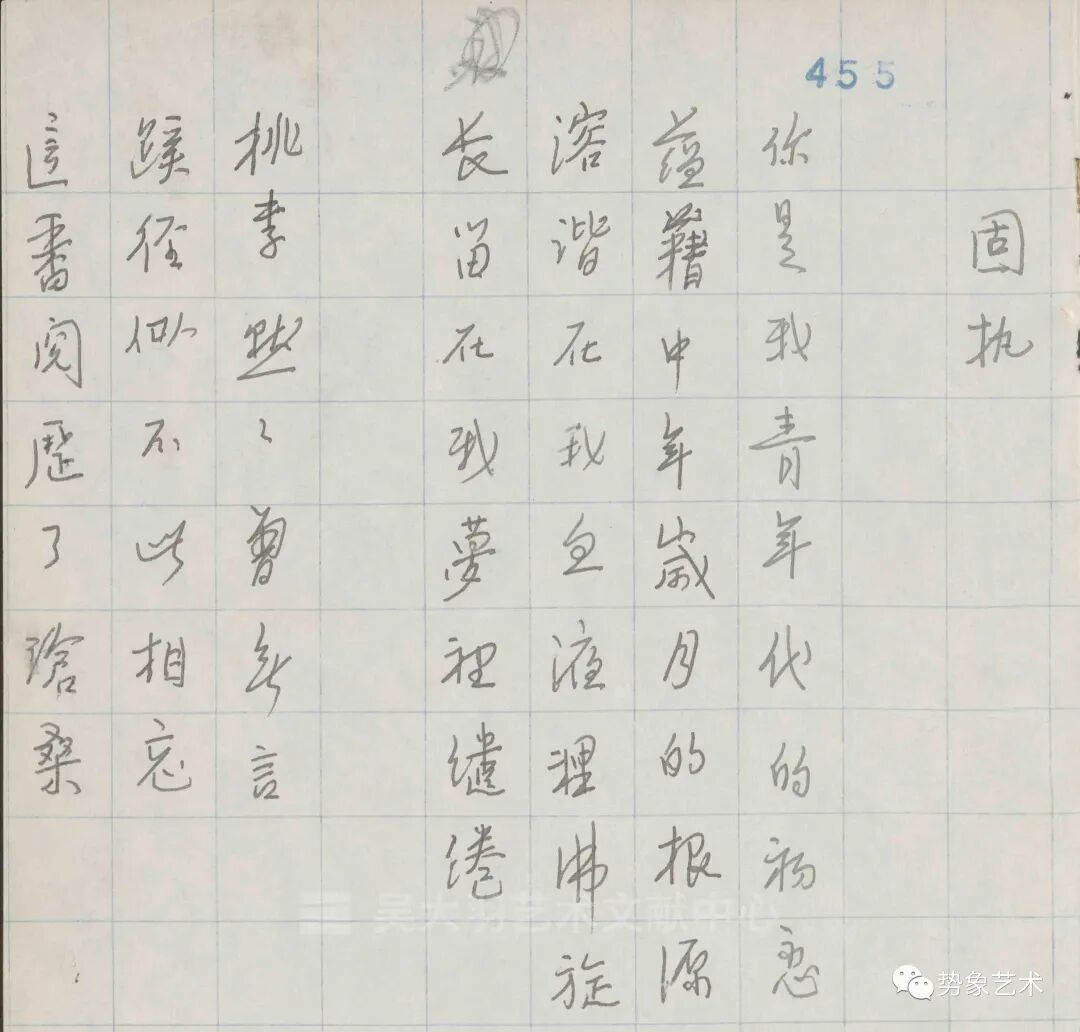 455
固执
你是我青年代的初恋
蕴藉中年歲月的根源
溶谐在我血液裡沸旋
長留在我夢裡缱绻
桃李默々曾无言
蹊径似不此相忘
這番阅歷了滄桑
吴大羽艺术文献中心
势象艺术